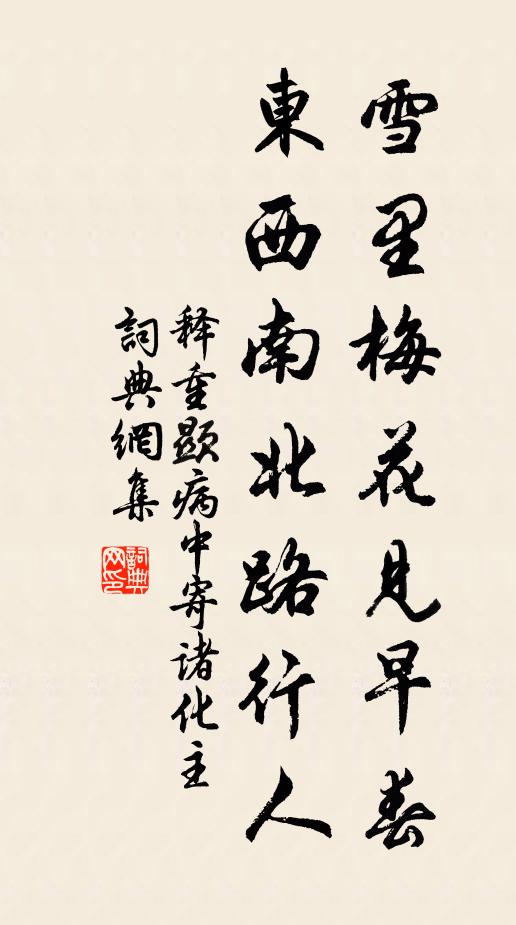 雪里梅花见早春
東西南北路行人
释重顯病中寄诸化主
詞典網集
詞典网印